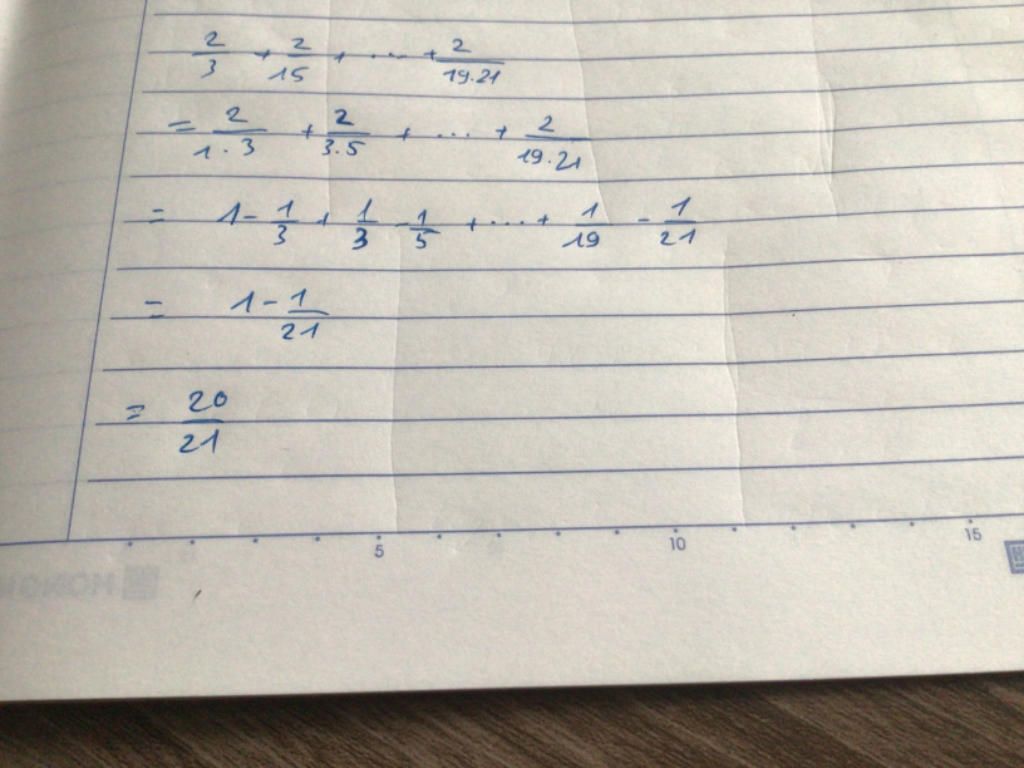 2/3 + 2/15 + ... + 2/19.21
= 2/1.3 + 2/3.5 + ... + 2/19.21
= 1 - 1/3 + 1/3 - 1/5 + ... + 1/19 - 1/21
= 1 - 1/21
= 20/21
5 10 15